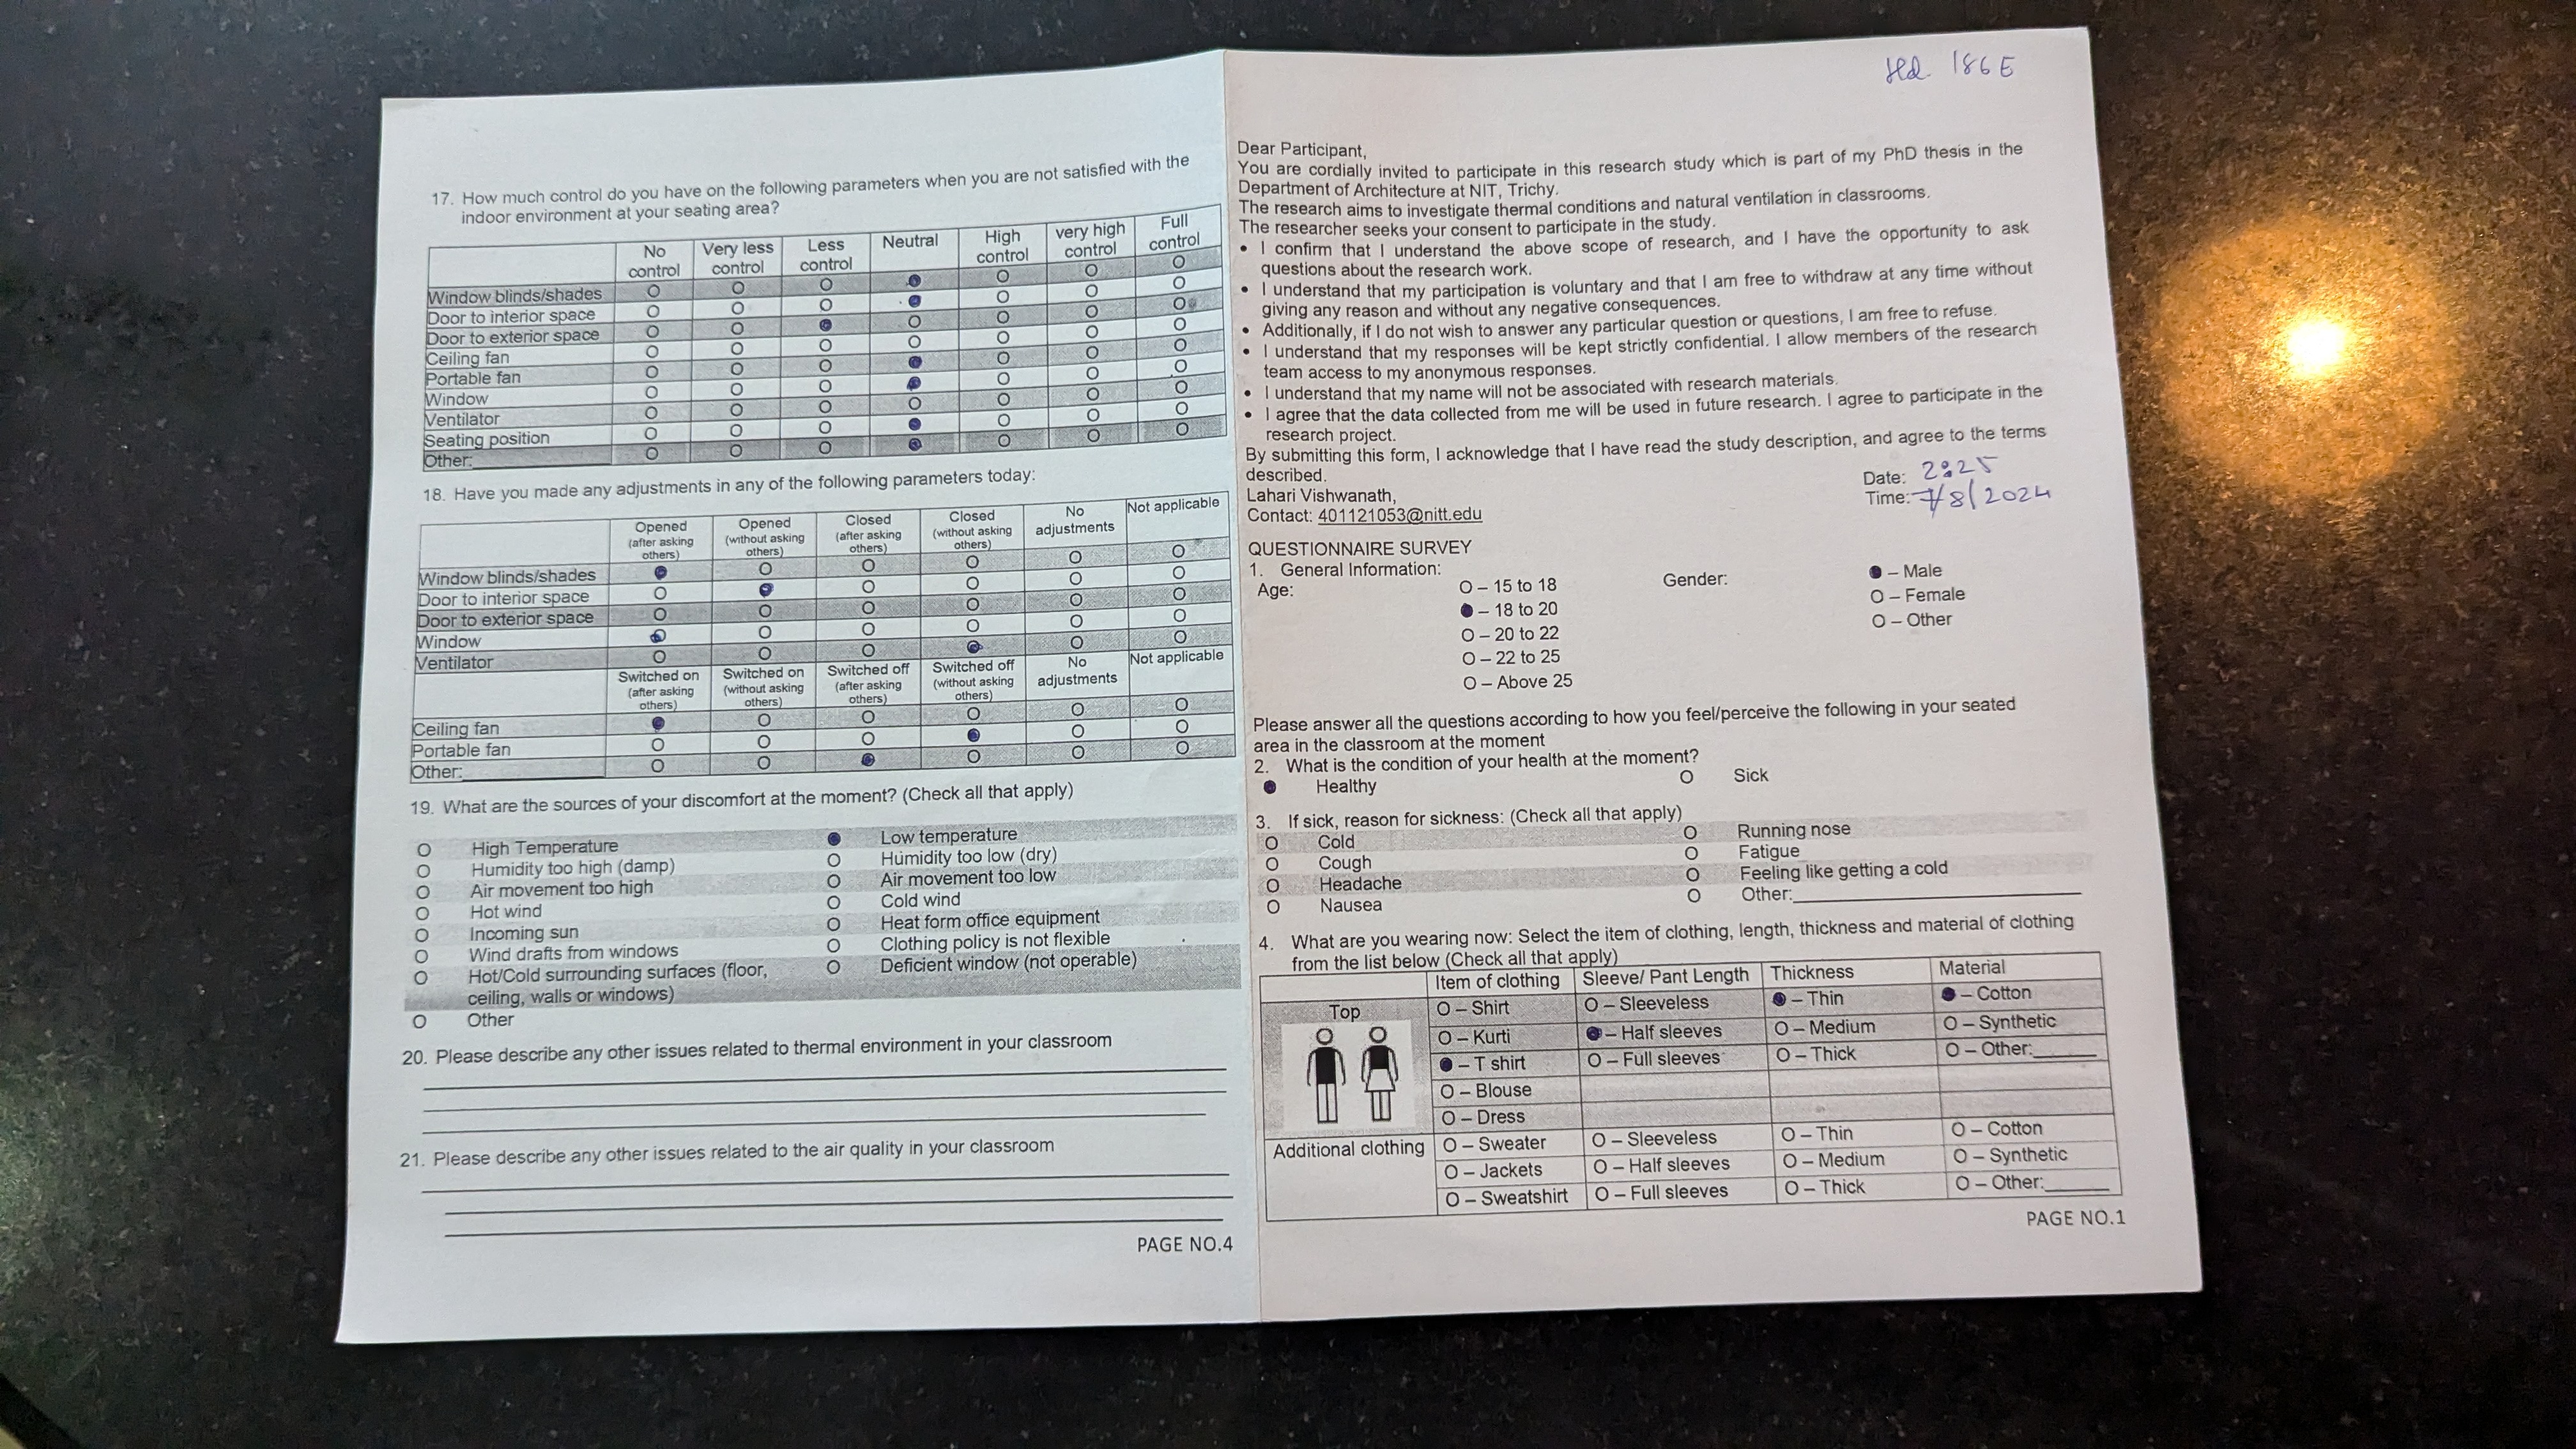 17. How much control do you have on the following parameters when you are not satisfied with the
indoor environment at your seating area?
No control Very less control Less control Neutral High control very high control Full control
Window blinds/shades O O O ● O O O
Door to interior space O O O ● O O O
Door to exterior space O O ● O O O O
Ceiling fan O O O O O O O
Portable fan O O O ● O O O
Window O O O ● O O O
Ventilator O O O O O O O
Seating position O O O ● O O O
Other: O O O ● O O O
18. Have you made any adjustments in any of the following parameters today:
Opened (after asking others) Opened (without asking others) Closed (after asking others) Closed (without asking others) No adjustments Not applicable
Window blinds/shades ● O O O O O
Door to interior space O ● O O O O
Door to exterior space O O O O O O
Window ● O O O O O
Ventilator O O O ● O O
Switched on (after asking others) Switched on (without asking others) Switched off (after asking others) Switched off (without asking others) No adjustments Not applicable
Ceiling fan ● O O O O O
Portable fan O O O ● O O
Other: O O ● O O O
19. What are the sources of your discomfort at the moment? (Check all that apply)
O High Temperature ● Low temperature
O Humidity too high (damp) O Humidity too low (dry)
O Air movement too high O Air movement too low
O Hot wind O Cold wind
O Incoming sun O Heat form office equipment
O Wind drafts from windows O Clothing policy is not flexible
O Hot/Cold surrounding surfaces (floor, O Deficient window (not operable)
ceiling, walls or windows)
O Other
20. Please describe any other issues related to thermal environment in your classroom
21. Please describe any other issues related to the air quality in your classroom
PAGE NO.4
186E
Dear Participant,
You are cordially invited to participate in this research study which is part of my PhD thesis in the
Department of Architecture at NIT, Trichy.
The research aims to investigate thermal conditions and natural ventilation in classrooms.
The researcher seeks your consent to participate in the study.
• I confirm that I understand the above scope of research, and I have the opportunity to ask
questions about the research work.
• I understand that my participation is voluntary and that I am free to withdraw at any time without
giving any reason and without any negative consequences.
• Additionally, if I do not wish to answer any particular question or questions, I am free to refuse.
• I understand that my responses will be kept strictly confidential. I allow members of the research
team access to my anonymous responses.
• I understand that my name will not be associated with research materials.
• I agree that the data collected from me will be used in future research. I agree to participate in the
research project.
By submitting this form, I acknowledge that I have read the study description, and agree to the terms
described.
Lahari Vishwanath,
Contact: 401121053@nitt.edu
Date: 2:25
Time: 7/8/2024
QUESTIONNAIRE SURVEY
1. General Information:
Age:
O – 15 to 18
● – 18 to 20
O – 20 to 22
O – 22 to 25
O – Above 25
Gender:
● – Male
O – Female
O – Other
Please answer all the questions according to how you feel/perceive the following in your seated
area in the classroom at the moment
2. What is the condition of your health at the moment?
● Healthy O Sick
3. If sick, reason for sickness: (Check all that apply)
O Cold O Running nose
O Cough O Fatigue
O Headache O Feeling like getting a cold
O Nausea O Other:
4. What are you wearing now: Select the item of clothing, length, thickness and material of clothing
from the list below (Check all that apply)
Item of clothing Sleeve/ Pant Length Thickness Material
Top O – Shirt O – Sleeveless ● – Thin ● – Cotton
O – Kurti ● – Half sleeves O – Medium O – Synthetic
● – T shirt O – Full sleeves O – Thick O – Other:
O – Blouse
O – Dress
Additional clothing O – Sweater O – Sleeveless O – Thin O – Cotton
O – Jackets O – Half sleeves O – Medium O – Synthetic
O – Sweatshirt O – Full sleeves O – Thick O – Other:
PAGE NO.1